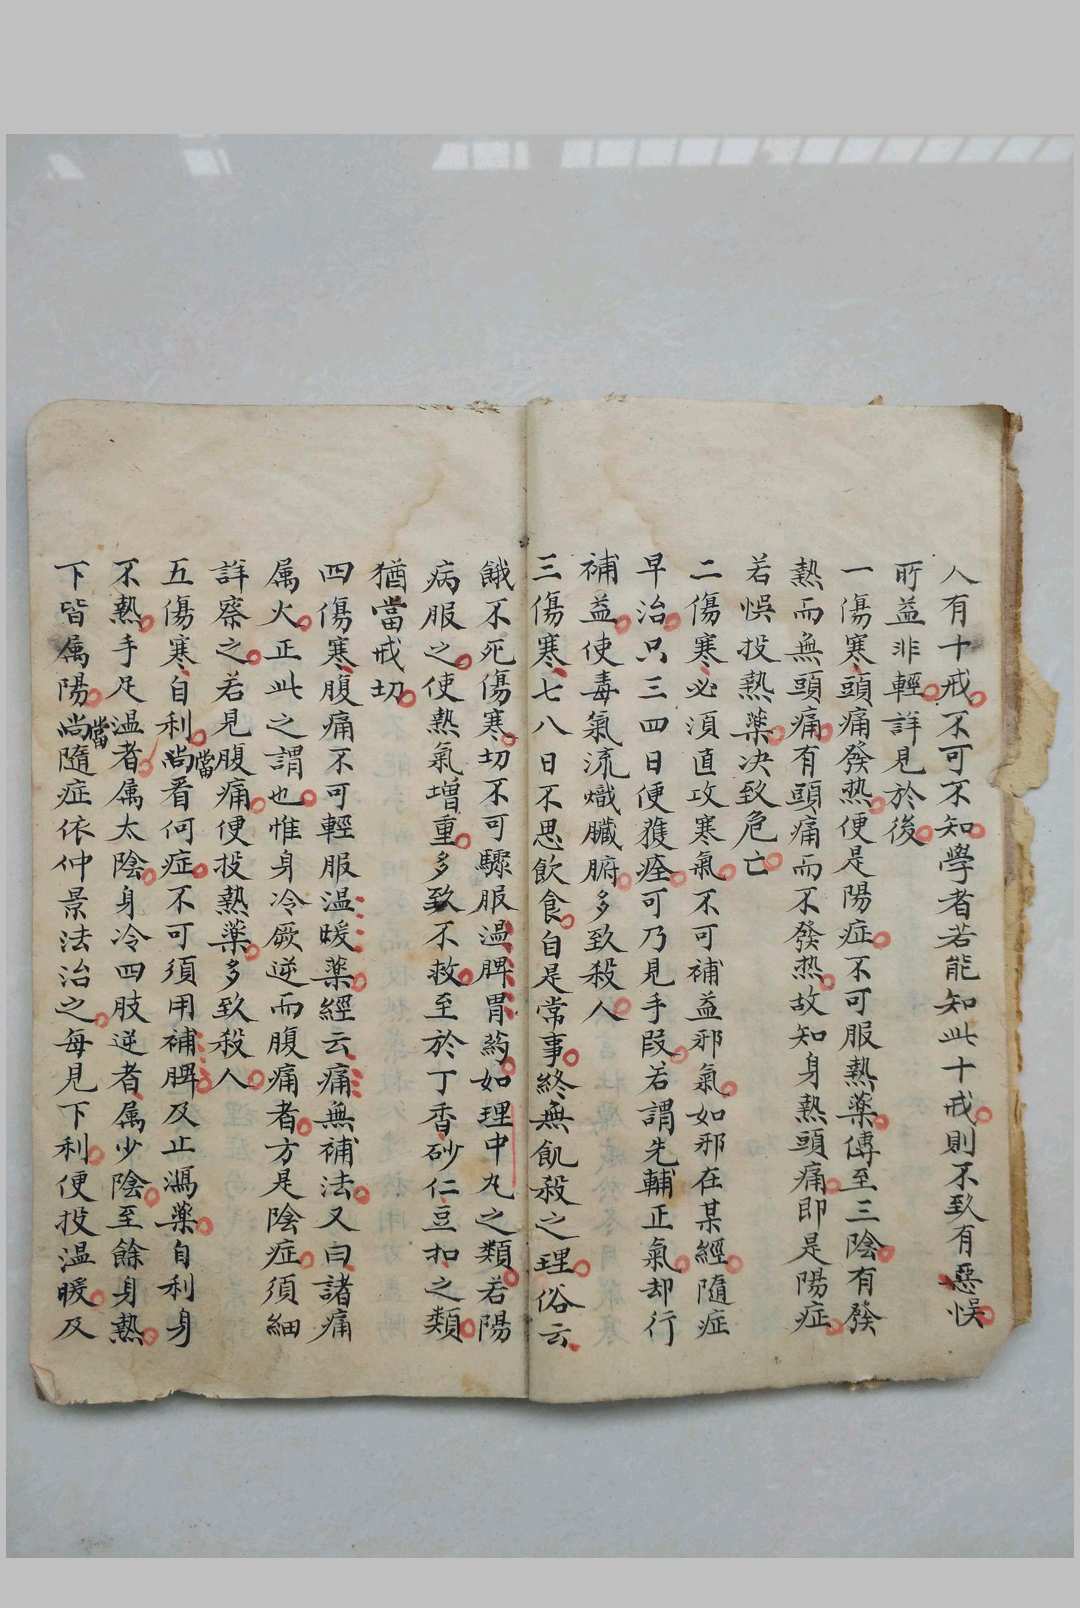 人有十戒不可不知學者若能知此十戒則不致有惡悞
所益非輕詳見於後
一傷寒頭痛發热便是陽症不可服熱藥傳至三陰有發
熱而無頭痛有頭痛而不發热故知身熱頭痛即是陽症
若悞投熱藥决致危亡
二傷寒必須直攻寒氣不可補益邪氣如邪在某經隨症
早治只三四日便獲痊可乃見手段若謂先輔正氣却行
補益使毒氣流熾臟腑多致殺人
三傷寒七八日不思飲食自是常事終無飢殺之理俗云
餓不死傷寒切不可驟服温脾胃药如理中丸之類若陽
病服之使熱氣增重多致不救至於丁香砂仁豆扣之類
猶當戒切
四傷寒腹痛不可輕服温暖藥經云痛無補法又曰諸痛
属火正此之謂也惟身冷厥逆而腹痛者方是陰症須細
詳察之若見腹痛便投熱藥多致殺人
五傷寒自利尚當看何症不可須用補脾及止瀉藥自利身
不熱手足温者属太陰身冷四肢逆者属少陰至餘身熱
下皆属陽尚當隨症依仲景法治之每見下利便投温暖及